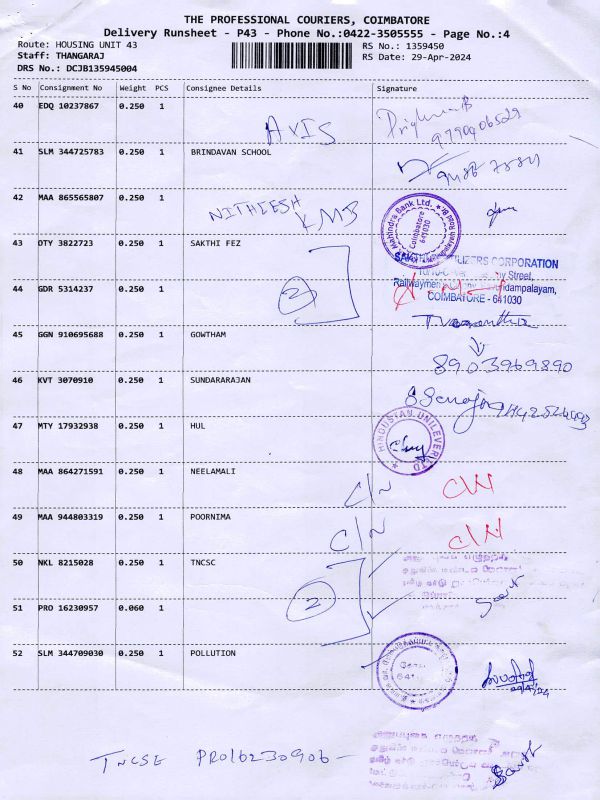 THE PROFESSIONAL COURIERS, COIMBATORE
Delivery Runsheet - P43 - Phone No.:0422-3505555 - Page No.:4
Route: HOUSING UNIT 43
RS No.: 1359450
Staff: THANGARAJ
RS Date: 29-Apr-2024
DRS No.: DCJB135945004
S No Consignment No Weight PCS Consignee Details Signature
40 EDQ 10237867 0.250 1
AXIS
41 SLM 344725783 0.250 1 BRINDAVAN SCHOOL
42 MAA 865565807 0.250 1
NITHEESH KMB
Mahindra Bank Ltd.
Coimbatore
641030
43 OTY 3822723 0.250 1 SAKTHI FEZ
CORPORATION
Street,
44 GDR 5314237 0.250 1
2
COIMBATORE - 641030
45 GGN 910695688 0.250 1 GOWTHAM
8903969890
46 KVT 3070910 0.250 1 SUNDARARAJAN
47 MTY 17932938 0.250 1 HUL
HINDUSTAN UNILEVER LTD
48 MAA 864271591 0.250 1 NEELAMALI
C/N C/N
49 MAA 944803319 0.250 1 POORNIMA
C/N C/N
50 NKL 8215028 0.250 1 TNCSC
2
51 PRO 16230957 0.060 1
52 SLM 344709030 0.250 1 POLLUTION
TNCSE PRO16230906 -